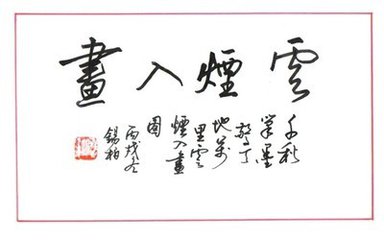 雲煙入畫
千秋
筆墨
驚天
地萬
里雲
煙入畫
圖
丙戌冬
錫柏